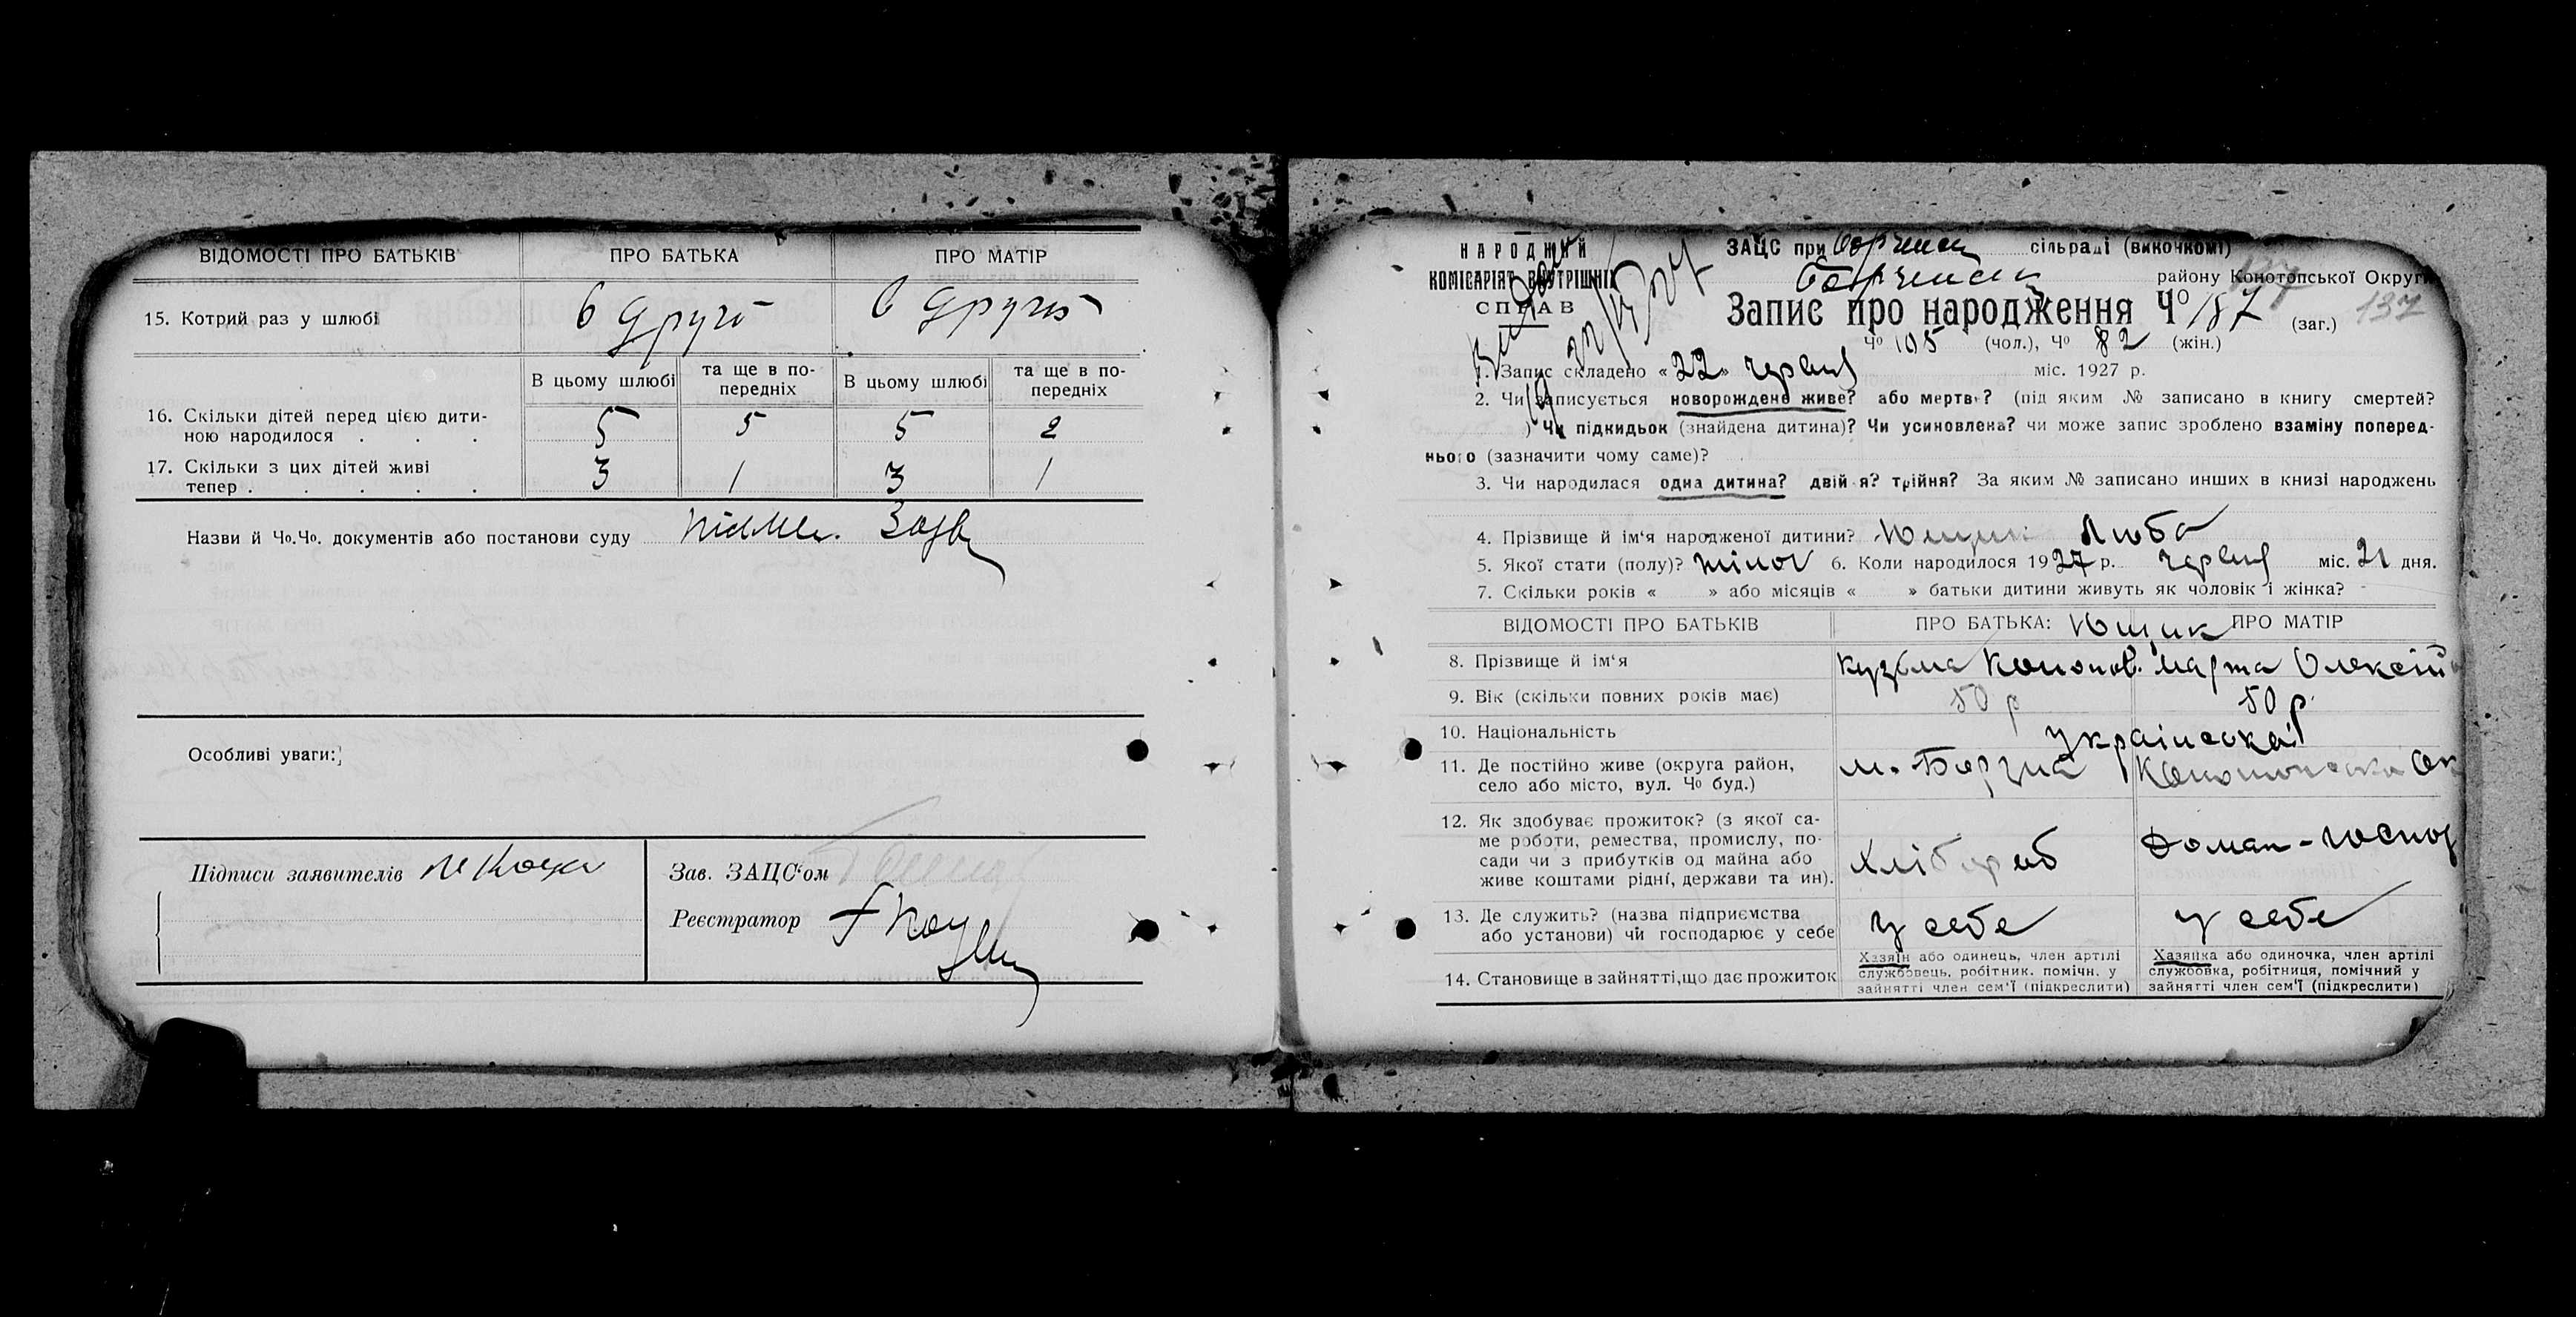 ВІДОМОСТІ ПРО БАТЬКІВ ПРО БАТЬКА ПРО МАТІР
15. Котрий раз у шлюбі в друге в друге
В цьому шлюбі та ще в по-передніх В цьому шлюбі та ще в по-передніх
16. Скільки дітей перед цією дити-
ною народилося . . . 5 5 5 2
17. Скільки з цих дітей живі
тепер . . . . . 3 1 3 1
Назви й Чо.Чо. документів або постанови суду
Особливі уваги:
Підписи заявителів
Зав. ЗАЦС'ом
Реєстратор
НАРОДНИЙ
КОМІСАРІЯТ ВНУТРІШНІХ
СПРАВ
ЗАЦС при сільраді (виконкомі)
району Конотопської Округи
Запис про народження Чо 187 (заг.) 137
Чо 105 (чол.), Чо 82 (жін.)
1. Запис складено «22» червня міс. 1927 р.
2. Чи записується новорождене живе? або мертве? (під яким № записано в книгу смертей?
) Чи підкидьок (знайдена дитина)? Чи усиновлена? чи може запис зроблено взаміну поперед-
нього (зазначити чому саме)?
3. Чи народилася одна дитина? двійня? трійня? За яким № записано инших в книзі народжень
4. Прізвище й ім'я народженої дитини? Ющик Люба
5. Якої стати (полу)? жіноч 6. Коли народилося 1927 р. червня міс. 21 дня.
7. Скільки років « » або місяців « » батьки дитини живуть як чоловік і жінка?
ВІДОМОСТІ ПРО БАТЬКІВ ПРО БАТЬКА: Ющик ПРО МАТІР
8. Прізвище й ім'я Кузьма Кононов. Марта Олексій
9. Вік (скільки повних років має) 50 р 50 р.
10. Національність українська
11. Де постійно живе (округа район, м. Борзна Конотопська Ок
село або місто, вул. Чо буд.)
12. Як здобуває прожиток? (з якої са-
ме роботи, ремества, промислу, по-
сади чи з прибутків од майна або
живе коштами рідні, держави та ин). Хлібороб Домаш-господ
13. Де служить? (назва підприємства
або установи) чи господарює у себе у себе у себе
14. Становище в зайнятті, що дає прожиток
Хазяїн або одинець, член артілі
службовець, робітник. помічн. у
зайнятті член сем'ї (підкреслити)
Хазяйка або одиночка, член артілі
службовка, робітниця, помічний у
зайнятті член сем'ї (підкреслити)